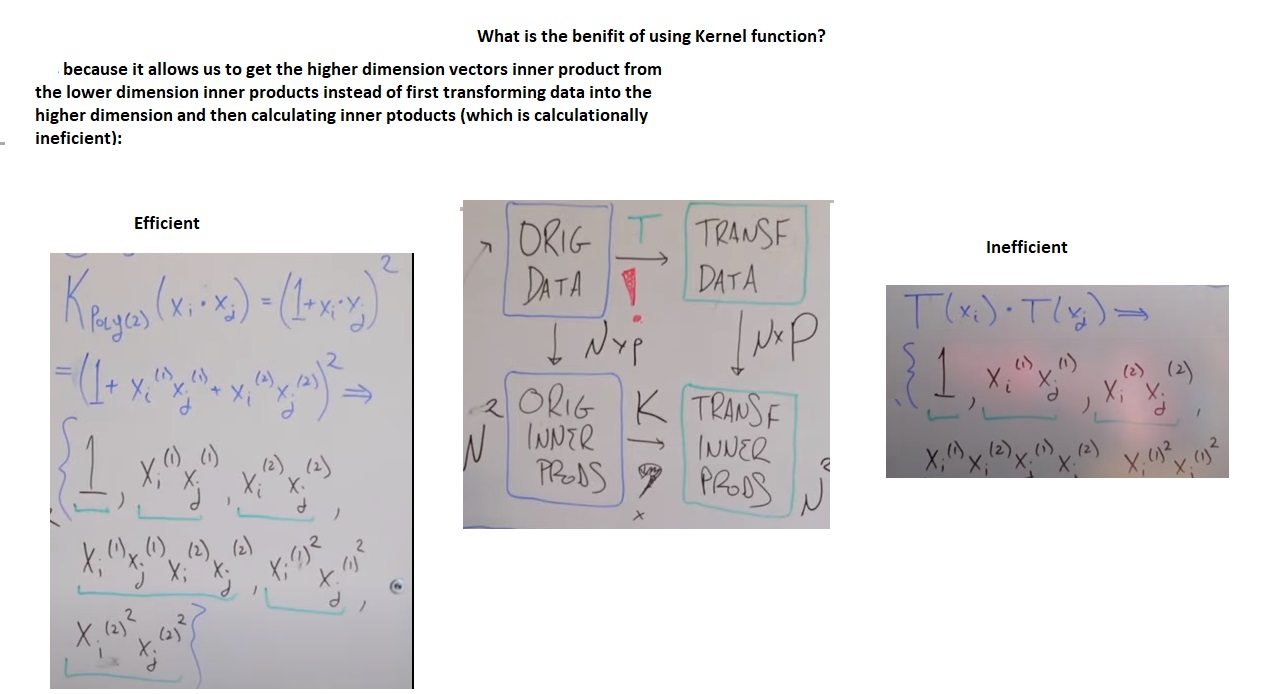 What is the benifit of using Kernel function?
because it allows us to get the higher dimension vectors inner product from
the lower dimension inner products instead of first transforming data into the
higher dimension and then calculating inner ptoducts (which is calculationally
ineficient):
Efficient
K Poly(2) (xᵢ · xⱼ) = (1 + xᵢ · xⱼ)²
= (1 + xᵢ⁽¹⁾xⱼ⁽¹⁾ + xᵢ⁽²⁾xⱼ⁽²⁾)² ⇒
{ 1, xᵢ⁽¹⁾xⱼ⁽¹⁾, xᵢ⁽²⁾xⱼ⁽²⁾,
xᵢ⁽¹⁾xⱼ⁽¹⁾xᵢ⁽²⁾xⱼ⁽²⁾, xᵢ⁽¹⁾²xⱼ⁽¹⁾²,
xᵢ⁽²⁾²xⱼ⁽²⁾² }
ORIG T TRANSF
DATA ! DATA
N×p N×P
ORIG K TRANSF
N² INNER INNER
PRODS PRODS N²
x
Inefficient
T(xᵢ) · T(xⱼ) ⇒
{ 1, xᵢ⁽¹⁾xⱼ⁽¹⁾, xᵢ⁽²⁾xⱼ⁽²⁾,
xᵢ⁽¹⁾xᵢ⁽²⁾xⱼ⁽¹⁾xⱼ⁽²⁾ xᵢ⁽¹⁾²xⱼ⁽¹⁾²